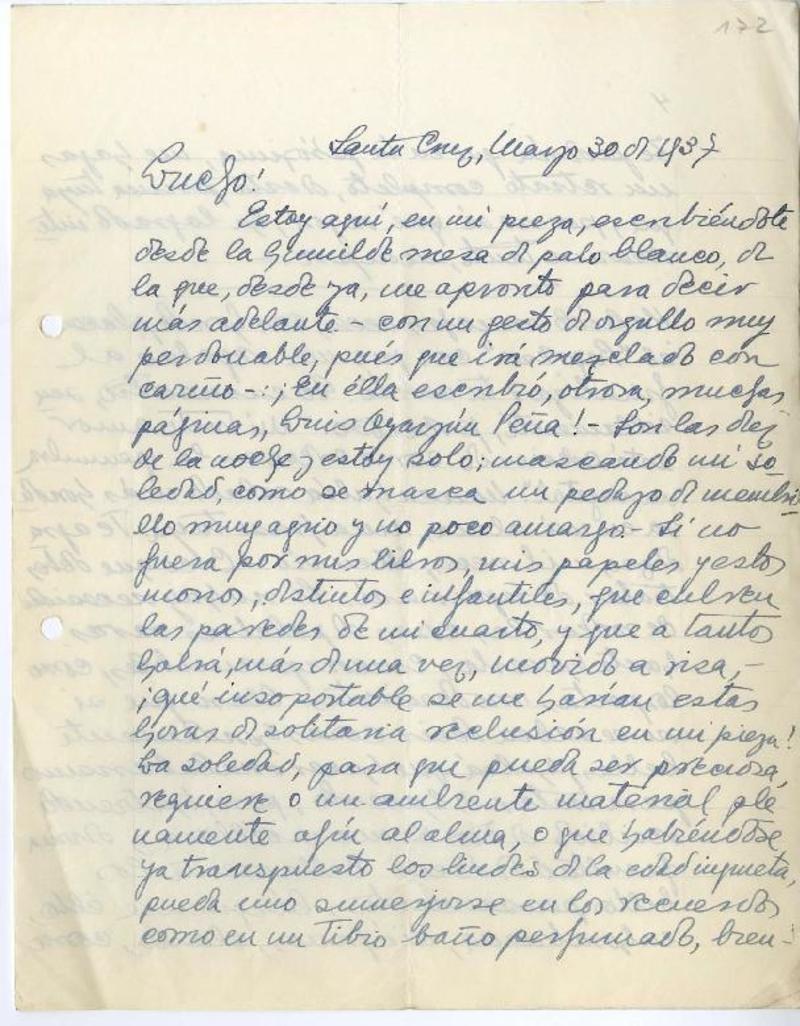 172
Santa Cruz, Marzo 30 de 1937
Lucho!
Estoy aquí, en mi pieza, escribiéndote
desde la humilde mesa de palo blanco, de
la que, desde ya, me apronto para decir
más adelante - con un gesto de orgullo muy
perdonable, pués que irá mezclado con
cariño -: ¡En élla escribió, otrora, muchas
páginas, Luis Oyarzún Peña! - Son las diez
de la noche y estoy solo; mascando mi so-
ledad, como se masca un pedazo de membri-
llo muy agrio y no poco amargo. - Si no
fuera por mis libros, mis papeles y estos
monos, distintos e infantiles, que cubren
las paredes de mi cuarto, y que a tantos
habrá, más de una vez, movido a risa, -
¡qué insoportable se me harían estas
horas de solitaria reclusión en mi pieza!
La soledad, para que pueda ser preciosa,
requiere o un ambiente material ple
namente afín al alma, o que habiéndose
ya transpuesto los lindes de la edad inquieta,
pueda uno sumerjirse en los recuerdos
como en un tibio baño perfumado, bien-